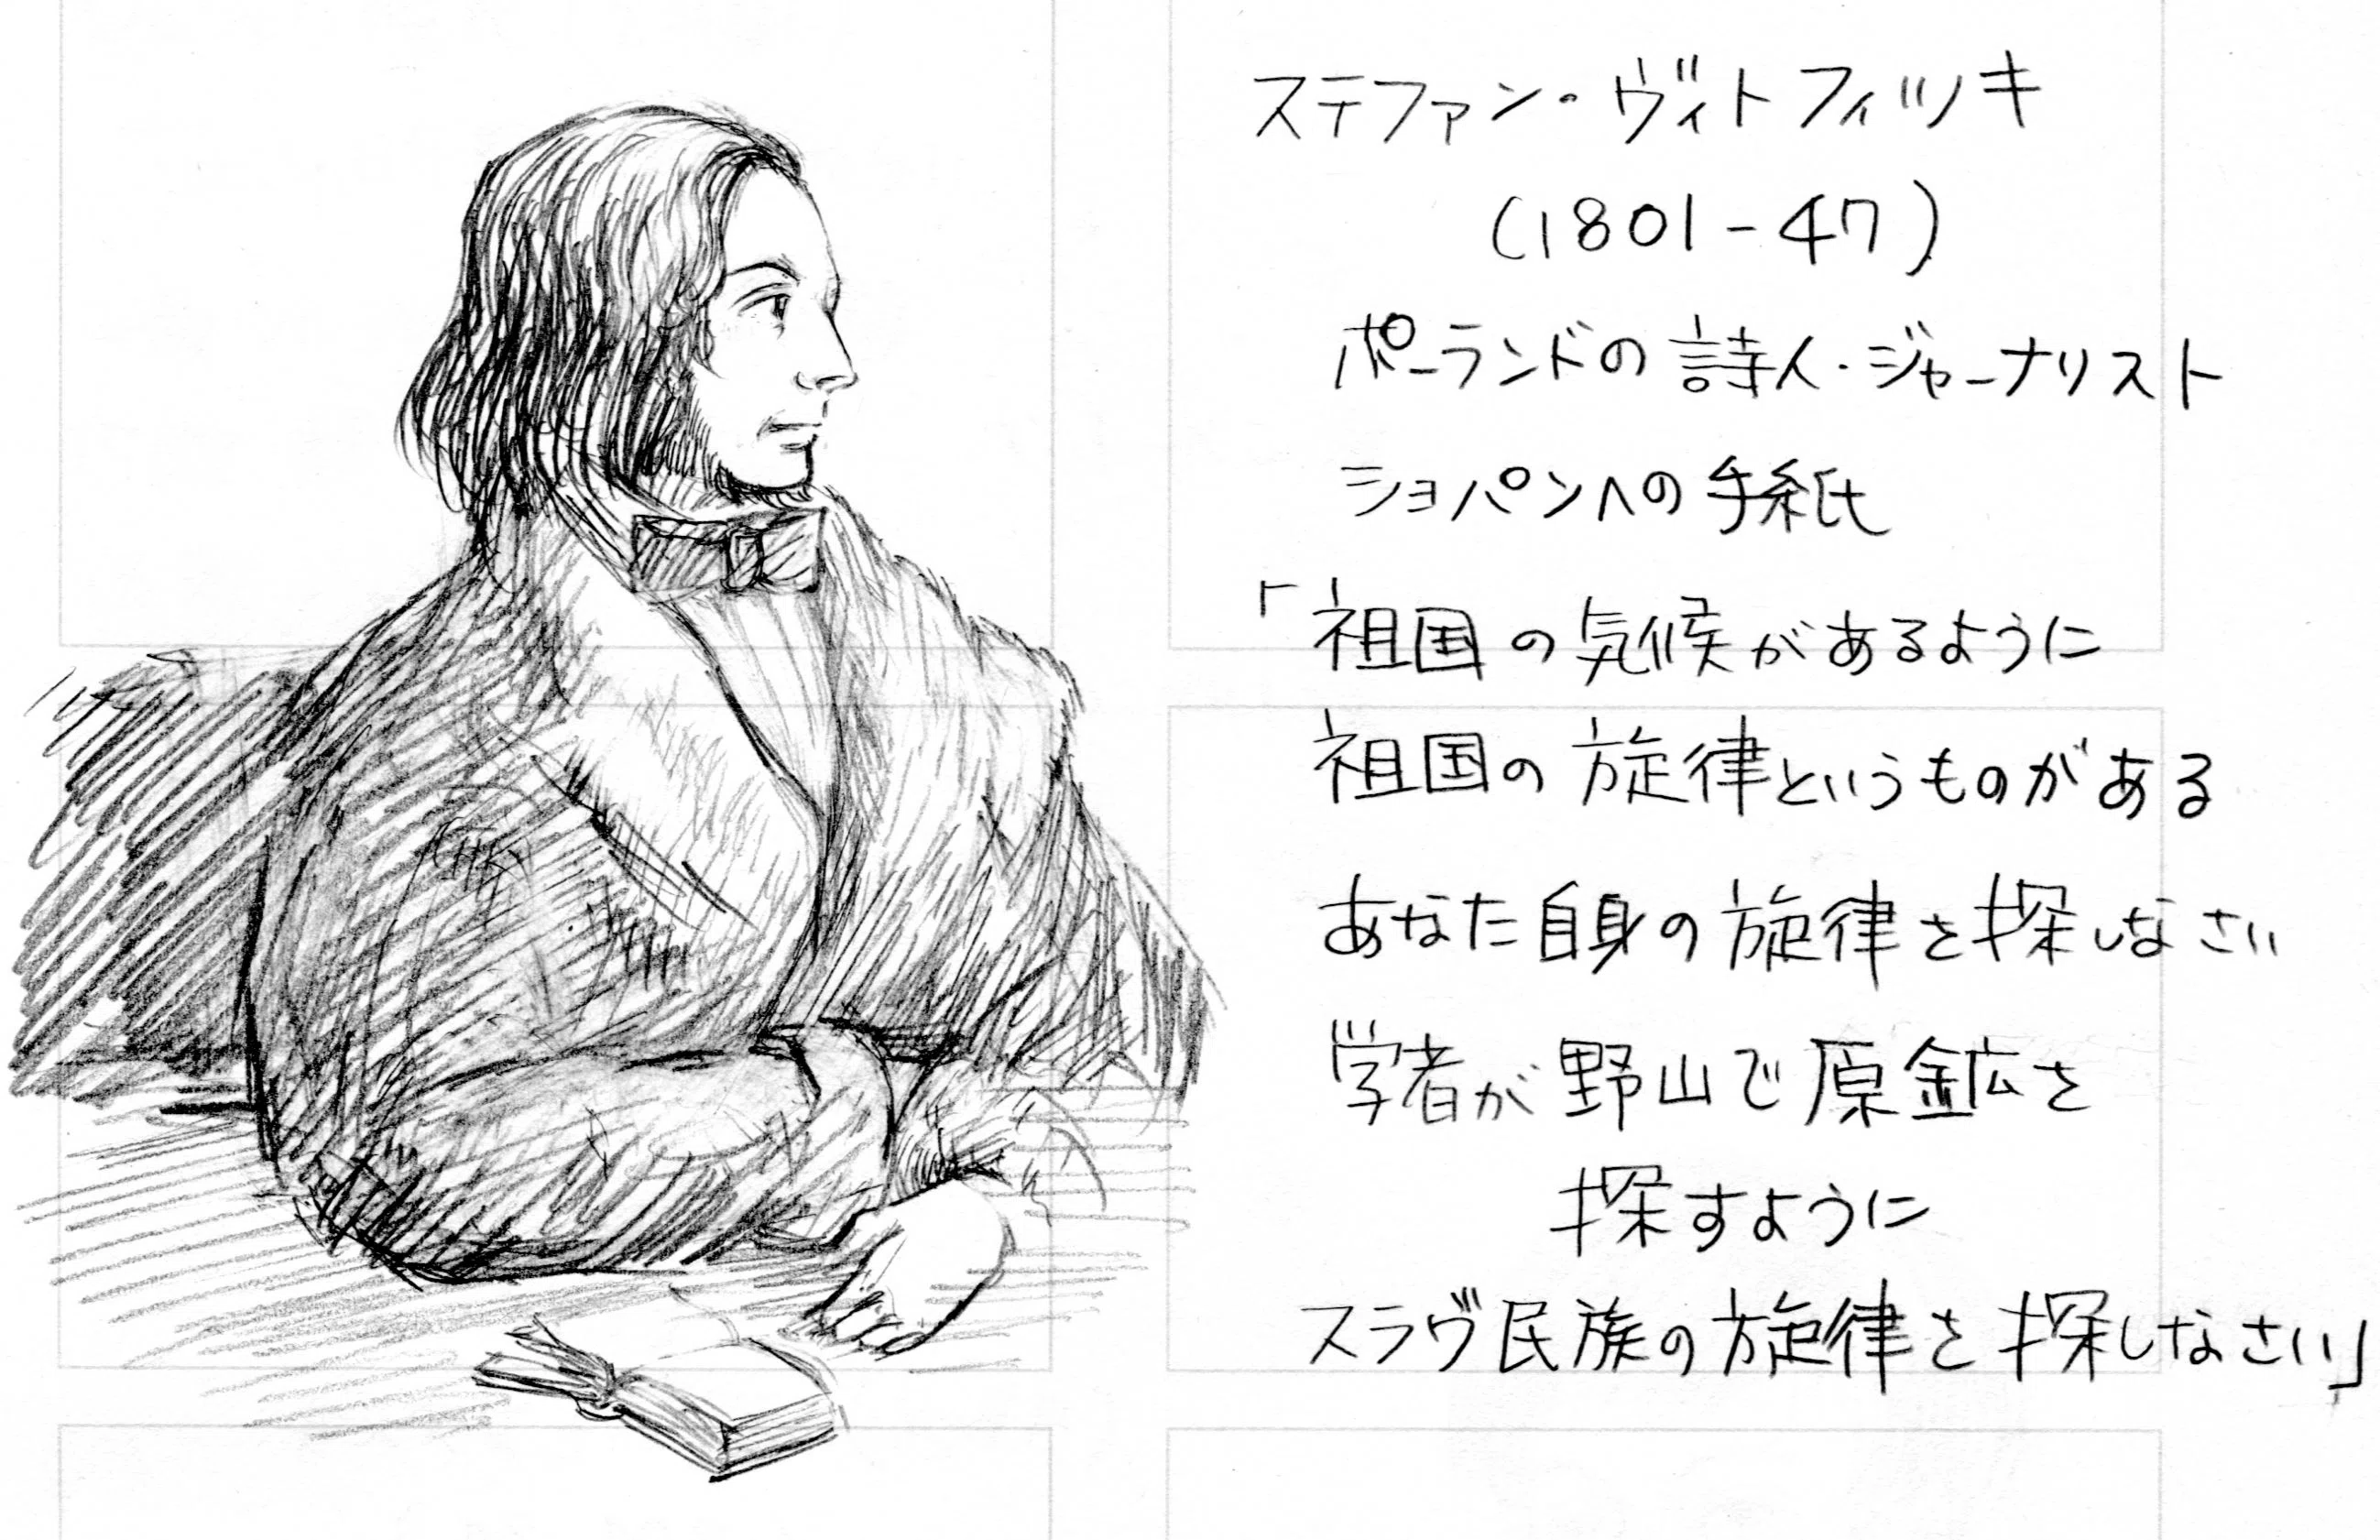 ステファン・ヴィトフィツキ
(1801-47)
ポーランドの詩人・ジャーナリスト
ショパンへの手紙
「祖国の気候があるように
祖国の旋律というものがある
あなた自身の旋律を探しなさい
学者が野山で原鉱を
探すように
スラヴ民族の旋律を探しなさい」